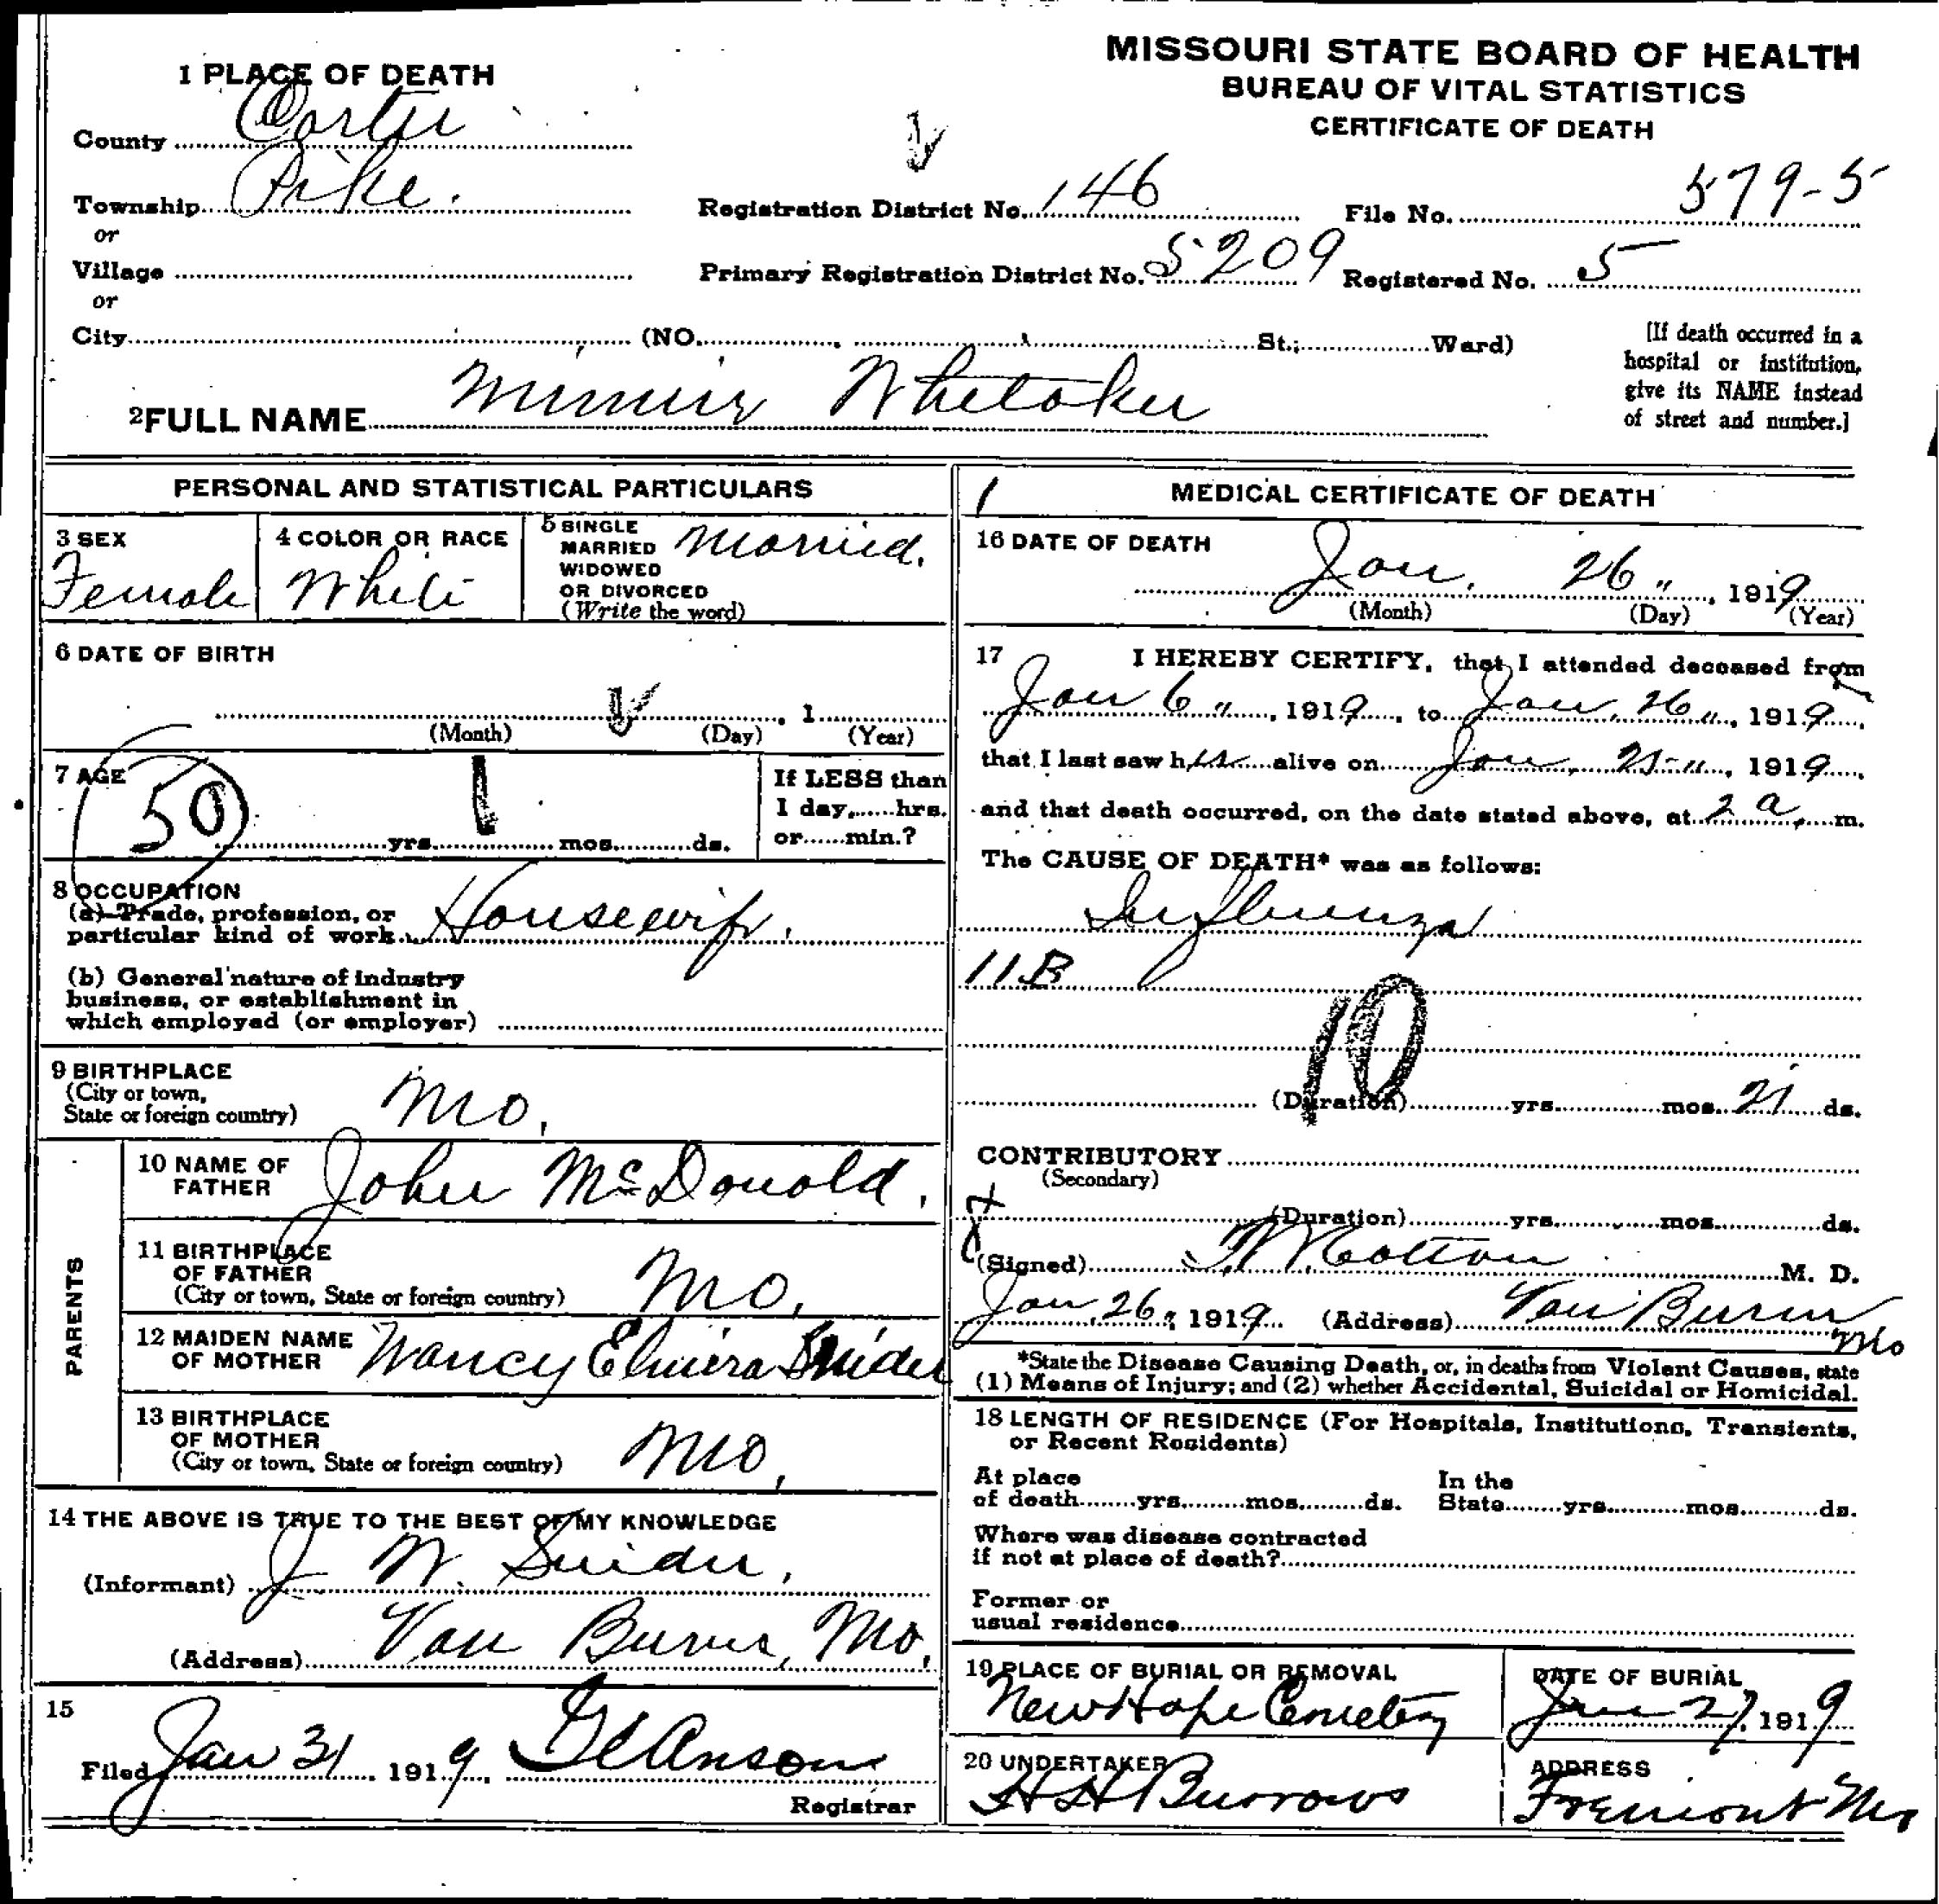 MISSOURI STATE BOARD OF HEALTH
BUREAU OF VITAL STATISTICS
CERTIFICATE OF DEATH
1 PLACE OF DEATH
County Carter
Township Pike.
or
Village
or
City (NO. St.; Ward)
Registration District No. 146 File No. 579-5
Primary Registration District No. 5209 Registered No. 5
[If death occurred in a
hospital or institution,
give its NAME instead
of street and number.]
2 FULL NAME Whitaker
PERSONAL AND STATISTICAL PARTICULARS
3 SEX
Female
4 COLOR OR RACE
White
5 SINGLE
MARRIED
WIDOWED
OR DIVORCED
(Write the word)
Married.
6 DATE OF BIRTH
, 1
(Month) (Day) (Year)
7 AGE
50 yrs. mos. ds.
If LESS than
1 day, hrs.
or min.?
8 OCCUPATION
(a) Trade, profession, or
particular kind of work Housewife.
(b) General nature of industry
business, or establishment in
which employed (or employer)
9 BIRTHPLACE
(City or town,
State or foreign country) Mo.
PARENTS
10 NAME OF
FATHER John McDonald.
11 BIRTHPLACE
OF FATHER
(City or town, State or foreign country) Mo.
12 MAIDEN NAME
OF MOTHER Nancy Elmira Snider
13 BIRTHPLACE
OF MOTHER
(City or town, State or foreign country) Mo.
14 THE ABOVE IS TRUE TO THE BEST OF MY KNOWLEDGE
(Informant) J W. Snider,
(Address) Van Buren, Mo.
15
Filed Jan 31 1919,
Registrar
MEDICAL CERTIFICATE OF DEATH
16 DATE OF DEATH
Jan. 26", 1919
(Month) (Day) (Year)
17 I HEREBY CERTIFY, that I attended deceased from
Jan 6", 1919, to Jan. 26", 1919,
that I last saw her alive on Jan. 25", 1919,
and that death occurred, on the date stated above, at 2 a. m.
The CAUSE OF DEATH* was as follows:
Influenza
11B
10
(Duration) yrs. mos. 21 ds.
CONTRIBUTORY
(Secondary)
(Duration) yrs. mos. ds.
(Signed) Cotton M. D.
Jan 26, 1919 (Address) Van Buren
Mo
*State the Disease Causing Death, or, in deaths from Violent Causes, state
(1) Means of Injury; and (2) whether Accidental, Suicidal or Homicidal.
18 LENGTH OF RESIDENCE (For Hospitals, Institutions, Transients,
or Recent Residents)
At place
of death yrs. mos. ds.
In the
State yrs. mos. ds.
Where was disease contracted
if not at place of death?
Former or
usual residence
19 PLACE OF BURIAL OR REMOVAL
New Hope Cemetery
DATE OF BURIAL
Jan 27, 1919
20 UNDERTAKER
H H Burrows
ADDRESS
Fremont Mo